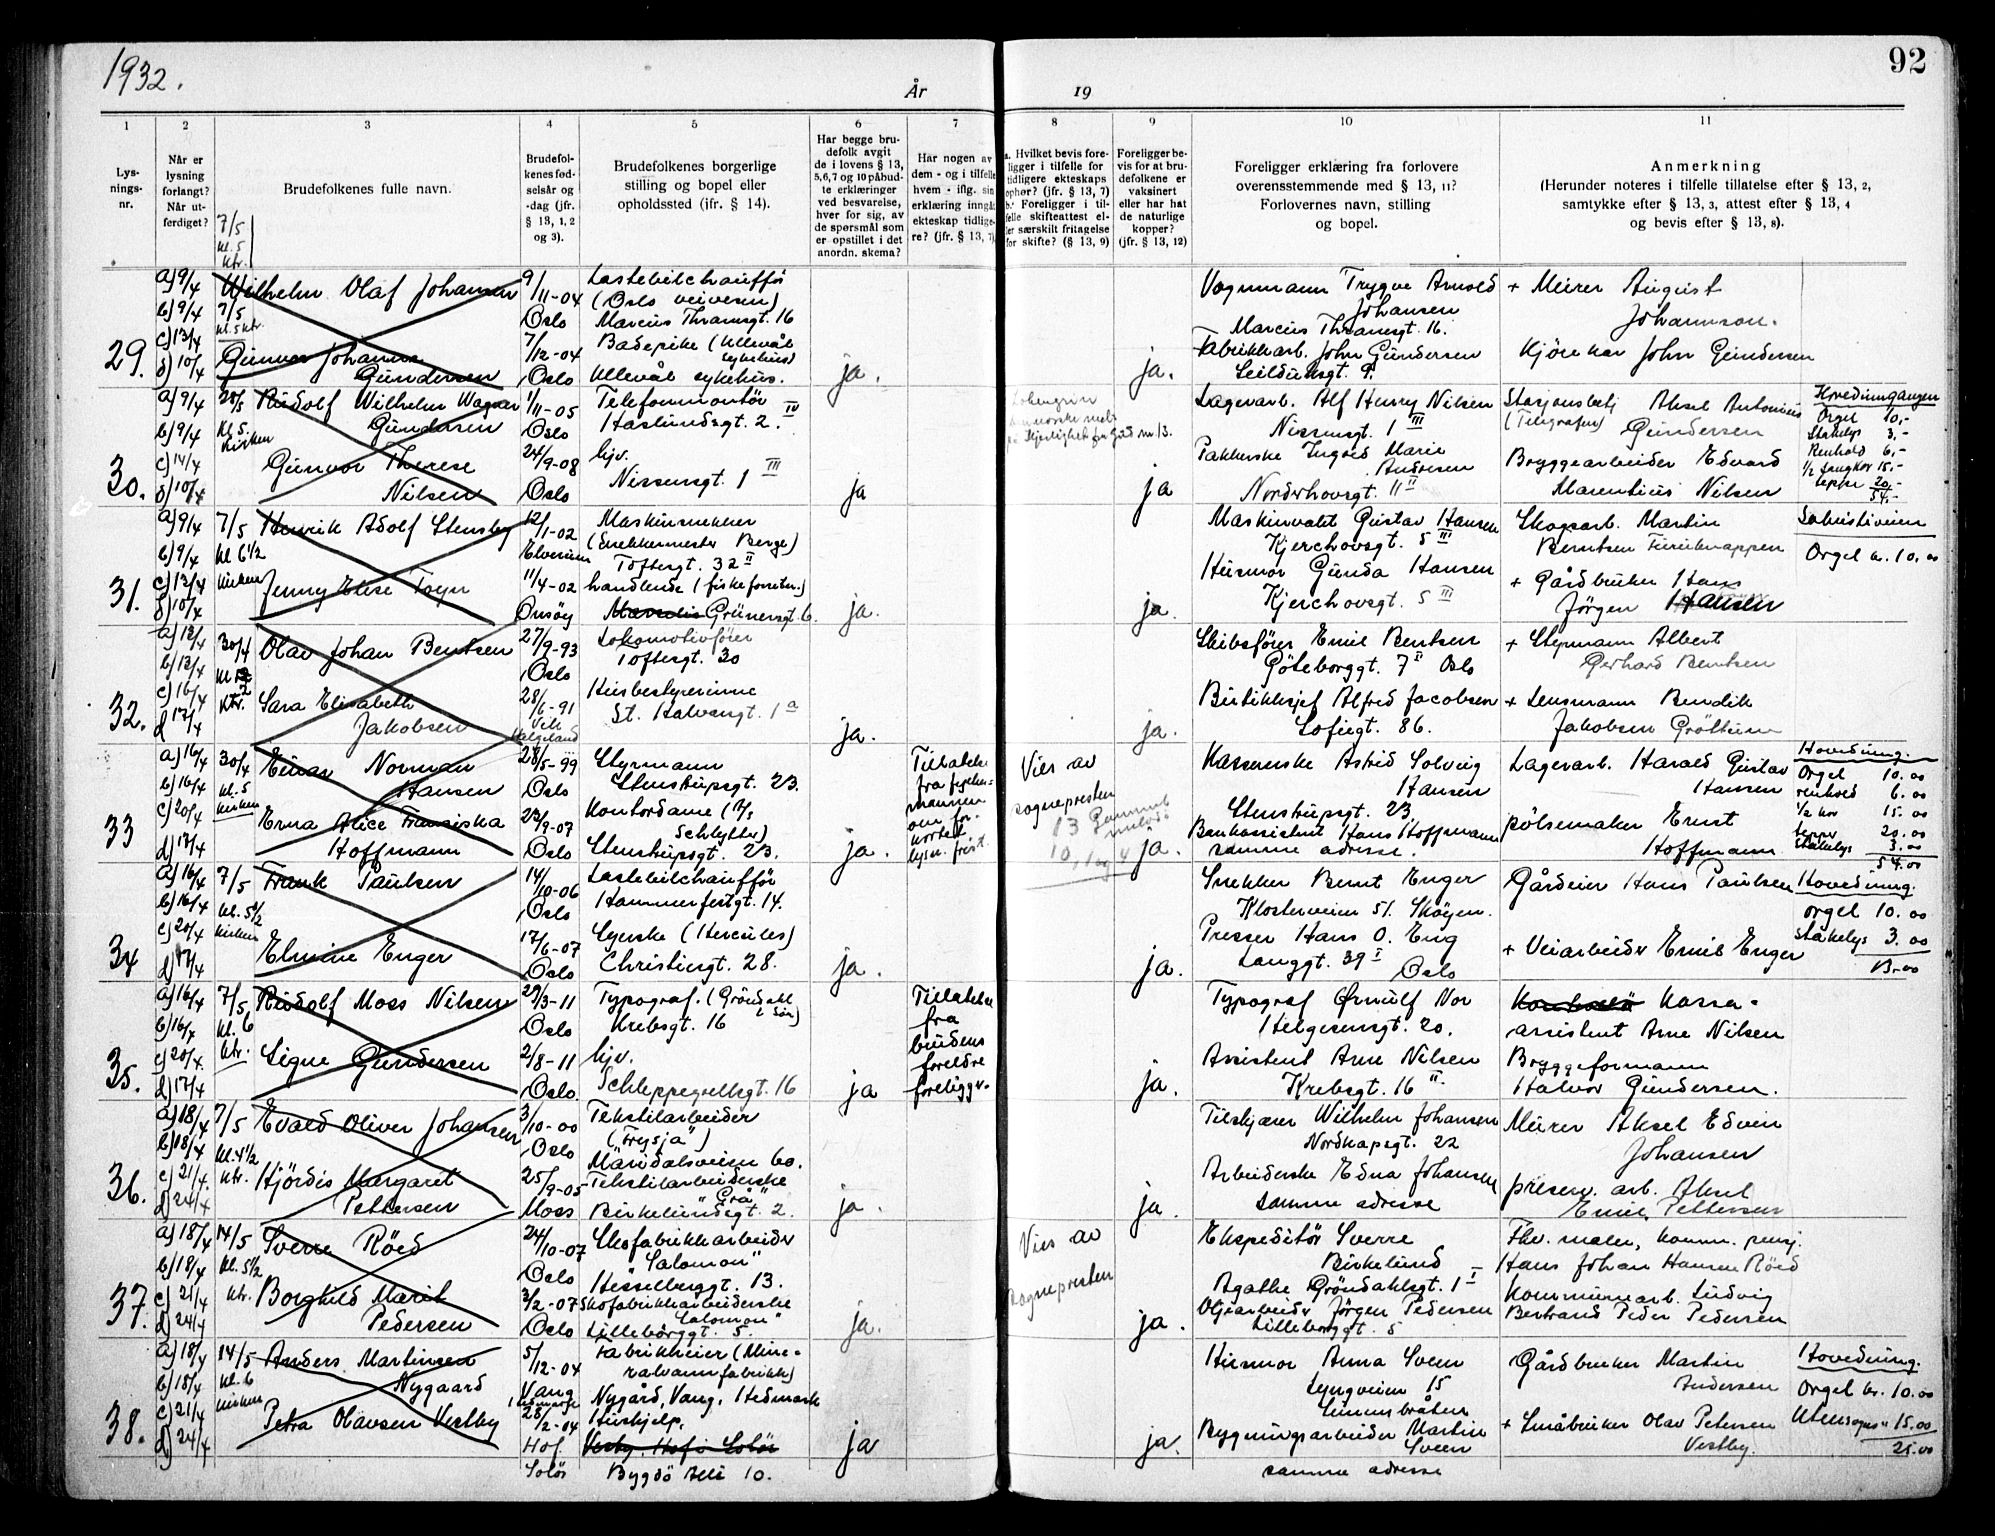 1932.
År
19
92
1
2
3
4
5
6
7
8
9
10
11
Lys-
nings-
nr.
Når er
lysning
forlangt?
Når ut-
ferdiget?
Brudefolkenes fulle navn.
Brudefol-
kenes fød-
selsår og
-dag (jfr.
§ 13, 1, 2
og 3).
Brudefolkenes borgerlige
stilling og bopel eller
opholdssted (ifr. § 14).
Har begge bru-
defolk avgit
de i lovens § 13,
5,6,7 og 10 påbud-
te erklæringer
ved besvarelse,
hver for sig, av
de spørsmål som
er opstillet i det
anordn. skema?
Har nogen av
dem - og i tilfelle
hvem - iflg. sin
erklæring inngåt
ekteskap tidlige-
re? (jfr. § 13, 7)
a. Hvilket bevis fore-
ligger i tilfelle for
tidligere ekteskaps
ophør? (jfr. § 13, 7)
b. Foreligger i til-
felle skifteattest el-
ler særskilt fritagelse
for skifte? (§ 13, 9)
Foreligger be-
vis for at bru-
defolkene er
vaksinert
eller har hat
de naturlige
kopper?
(jfr. § 13, 12)
Foreligger erklæring fra forlovere
overensstemmende med § 13, 11?
Forlovernes navn, stilling
og bopel.
Anmerkning
(Herunder noteres i tilfelle tillatelse efter § 13, 2,
samtykke efter § 13, 3, attest efter § 13, 4
og bevis efter § 13, 8).
7/5
kl. 5
ktr.
29.
a) 9/4
b) 9/4
c) 13/4
d) 10/4
7/5
kl. 5 ktr.
Wilhelm Olaf Johansen
Gunvor Johanne
Gundersen
9/11-04
Oslo
7/12-04
Oslo
Lastebilchauffør
(Oslo veivesen)
Marcus Thranesgt. 16
Badepike (Ullevål
sykehus)
Ullevål sykehus.
ja.
ja.
Vognmann Trygve Arnold
Johansen
Marcus Thranesgt. 16.
Fabrikkarb. John Gundersen
Seildugsgt. 9.
+ Murer August
Johannson.
Kjørekar John Gundersen
30.
a) 9/4
b) 9/4
c) 14/4
d) 10/4
28/5
Kl. 5.
Kirken
Rudolf Wilhelm Wagner
Gundersen
Gunvor Therese
Nilsen
1/11-05
Oslo
24/9-08
Oslo
Telefonmontør
Haslundsgt. 2. IV
hjv.
Nissensgt. 1 III
ja
Lohengrin
Kjerlighet fra Gud nr. 13.
ja
Lagerarb. Alf Henry Nilsen
Nissensgt. 1 III
Pakkerske Ingrid Marie
Andresen
Norderhovsgt. 11 II
Stasjonsbetj. Aksel Antonius
(Telegrafen) Gundersen
Bryggearbeider Edvard
Marentius Nilsen
Hovedinngangen
Orgel 10,-
Stakelys 3,-
Renhold 6,-
1/2 sangkor 15,-
tepper 20,-
54,-
31.
a) 9/4
b) 9/4
c) 13/4
d) 10/4
7/5
kl 6 1/2
kirken
Henrik Adolf Stensby
Jenny Elise Foyn
12/1-02
Elverum
11/4-02
Onsøy
Maskinsnekker
(Snekkermester Berge)
Toftesgt. 32 II
handlende (fiskeforretn.)
Grünersgt. 6.
ja.
ja.
Maskinvakt Gustav Hansen
Kjerchovsgt. 5 III
Husmor Gunda Hansen
Kjerchovsgt. 5 III
Skogsarb. Martin
Berntsen Furuknappen
+ Gårdbruker Hans
Jørgen Hansen
Sakristiveien
Orgel kr. 10.00
32.
a) 13/4
b) 13/4
c) 16/4
d 17/4
30/4
kl 2
Ktr.
Olav Johan Bentsen
Sara Elisabeth
Jakobsen
27/9-93
Oslo
28/6-91
Helgeland
Lokomotivfører
Toftesgt. 30
Husbestyrerinne
St. Halvardsgt. 1 a
ja.
ja.
Skibsfører Emil Bentsen
Göteborggt. 7 II Oslo
Butikksjef Alfred Jacobsen
Sofiegt. 86.
+ Styrmann Albert
Gerhard Bentsen
+ Lensmann Bendik
Jakobsen Grøttum
33
a) 16/4
b) 16/4
c) 20/4
d) 17/4
30/4
kl. 5
kirken
Einar Norman
Hansen
Erna Alice Franciska
Hoffmann
28/5-99
Oslo
23/9-07
Oslo
Styrmann
Stenstrupsgt. 23.
Kontordame (A/S
Schlytter)
Stenstrupsgt. 23.
ja.
Tillatelse
fra fylkes-
mannen
om for-
kortet
lysn. frist.
Vies av
sognepresten
13 Gammel
melodi
10, 1 og 4
ja.
Kassererske Astrid Solveig
Hansen
Stenstrupsgt. 23.
Bankassistent Hans Hoffmann
samme adresse.
Lagerarb. Harald Gustav
Hansen
pølsemaker Ernst
Hoffmann
Hovedinng.
Orgel 10.00
renhold 6.00
1/2 kor 15.00
tepper 20.00
Stakelys 3.00
54.00
34
a) 16/4
b) 16/4
c) 20/4
d) 17/4
7/5
kl. 5 1/2
kirken
Frank Paulsen
Elmine Enger
14/10-06
Oslo
17/6-07
Oslo
Lastebilchauffør
Hammerfestgt. 14.
Syerske (Hercules)
Christiesgt. 28.
ja.
ja.
Snekker Bernt Enger
Klosterveien 51. Skøyen.
Presser Hans O. Eng
Langgt. 39 I Oslo
Gårdeier Hans Paulsen
+ Veiarbeider Emil Enger
Hovedinng.
orgel 10.00
Stakelys 3.00
13.00
35.
a) 16/4
b) 16/4
c) 20/4.
d) 17/4
7/5
kl. 6
ktr.
Rudolf Moss Nilsen
Signe Gundersen
29/3-11
Oslo
2/8-11
Oslo.
Typograf. (Grøndahl
& Søn)
Krebsgt. 16
hjv.
Schleppegrellsgt. 16
ja
Tillatelse
fra
brudens
foreldre
foreligger.
ja.
Typograf Ørnulf Nor
Helgesensgt. 20.
Assistent Arne Nilsen
Krebsgt. 16 II.
Kassa-
assistent Arne Nilsen
Bryggeformann
Halvor Gundersen.
36.
a) 18/4
b) 18/4
c) 21/4.
d) 24/4
7/5
kl. 4 1/2
ktr.
Evald Oliver Johansen
Hjördis Margaret
Pettersen
3/10-00
Oslo
25/9-05
Moss
Tekstilarbeider
("Frysja")
Maridalsveien 60.
Tekstilarbeiderske
"Grå"
Birkelundsgt. 2.
ja.
ja.
Tilskjærer Wilhelm Johansen
Nordkapsgt. 22
Arbeiderske Edna Johansen
samme adresse
Murer Aksel Edvin
Johansen
preserv. arb. Aksel
Emil Pettersen
37.
a) 18/4
b) 18/4
c) 21/4
d) 24/4
14/5
kl. 5 1/2
ktr.
Sverre Röed
Borghild Marie
Pedersen
24/10-07
Oslo
3/2-07
Oslo
Skofabrikkarbeider
"Salomon"
Hesselberggt. 13.
Skofabrikkarbeiderske
"Salomon"
Lilleborggt. 5.
ja.
Vies av
sognepresten
ja.
Ekspeditør Sverre
Birkelund
Agathe Grøndahlsgt. 1 I
Oljearbeider Jørgen Pedersen
Lilleborggt. 5
Fhv. maler, komm. pensj.
Hans Johan Hansen Röed
Kommunearb. Ludvig
Bertrand Peder Pedersen
38.
a) 18/4
b) 18/4
c) 21/4
d) 24/4
14/5
kl. 6
kirken
Anders Martinsen
Nygaard
Petra Olavsen Vestby
5/12-04
Vang
Hedmark
28/2-04
Hof.
Solør
Fabrikkeier (Mine-
ralvannfabrikk)
Nygård, Vang, Hedmark
Hushjelp.
Vestby, Hof i Solør
Bygdö Alle 10.
ja
ja.
Husmor Anna Sveen
Lyngveien 15
Simensbråten
Bygningsarbeider Martin
Sveen
samme adresse
Gårdbruker Martin
Andersen
+ Småbruker Olav Petersen
Vestby.
Hovedinng.
Orgel kr. 10.00
15.00
25.00